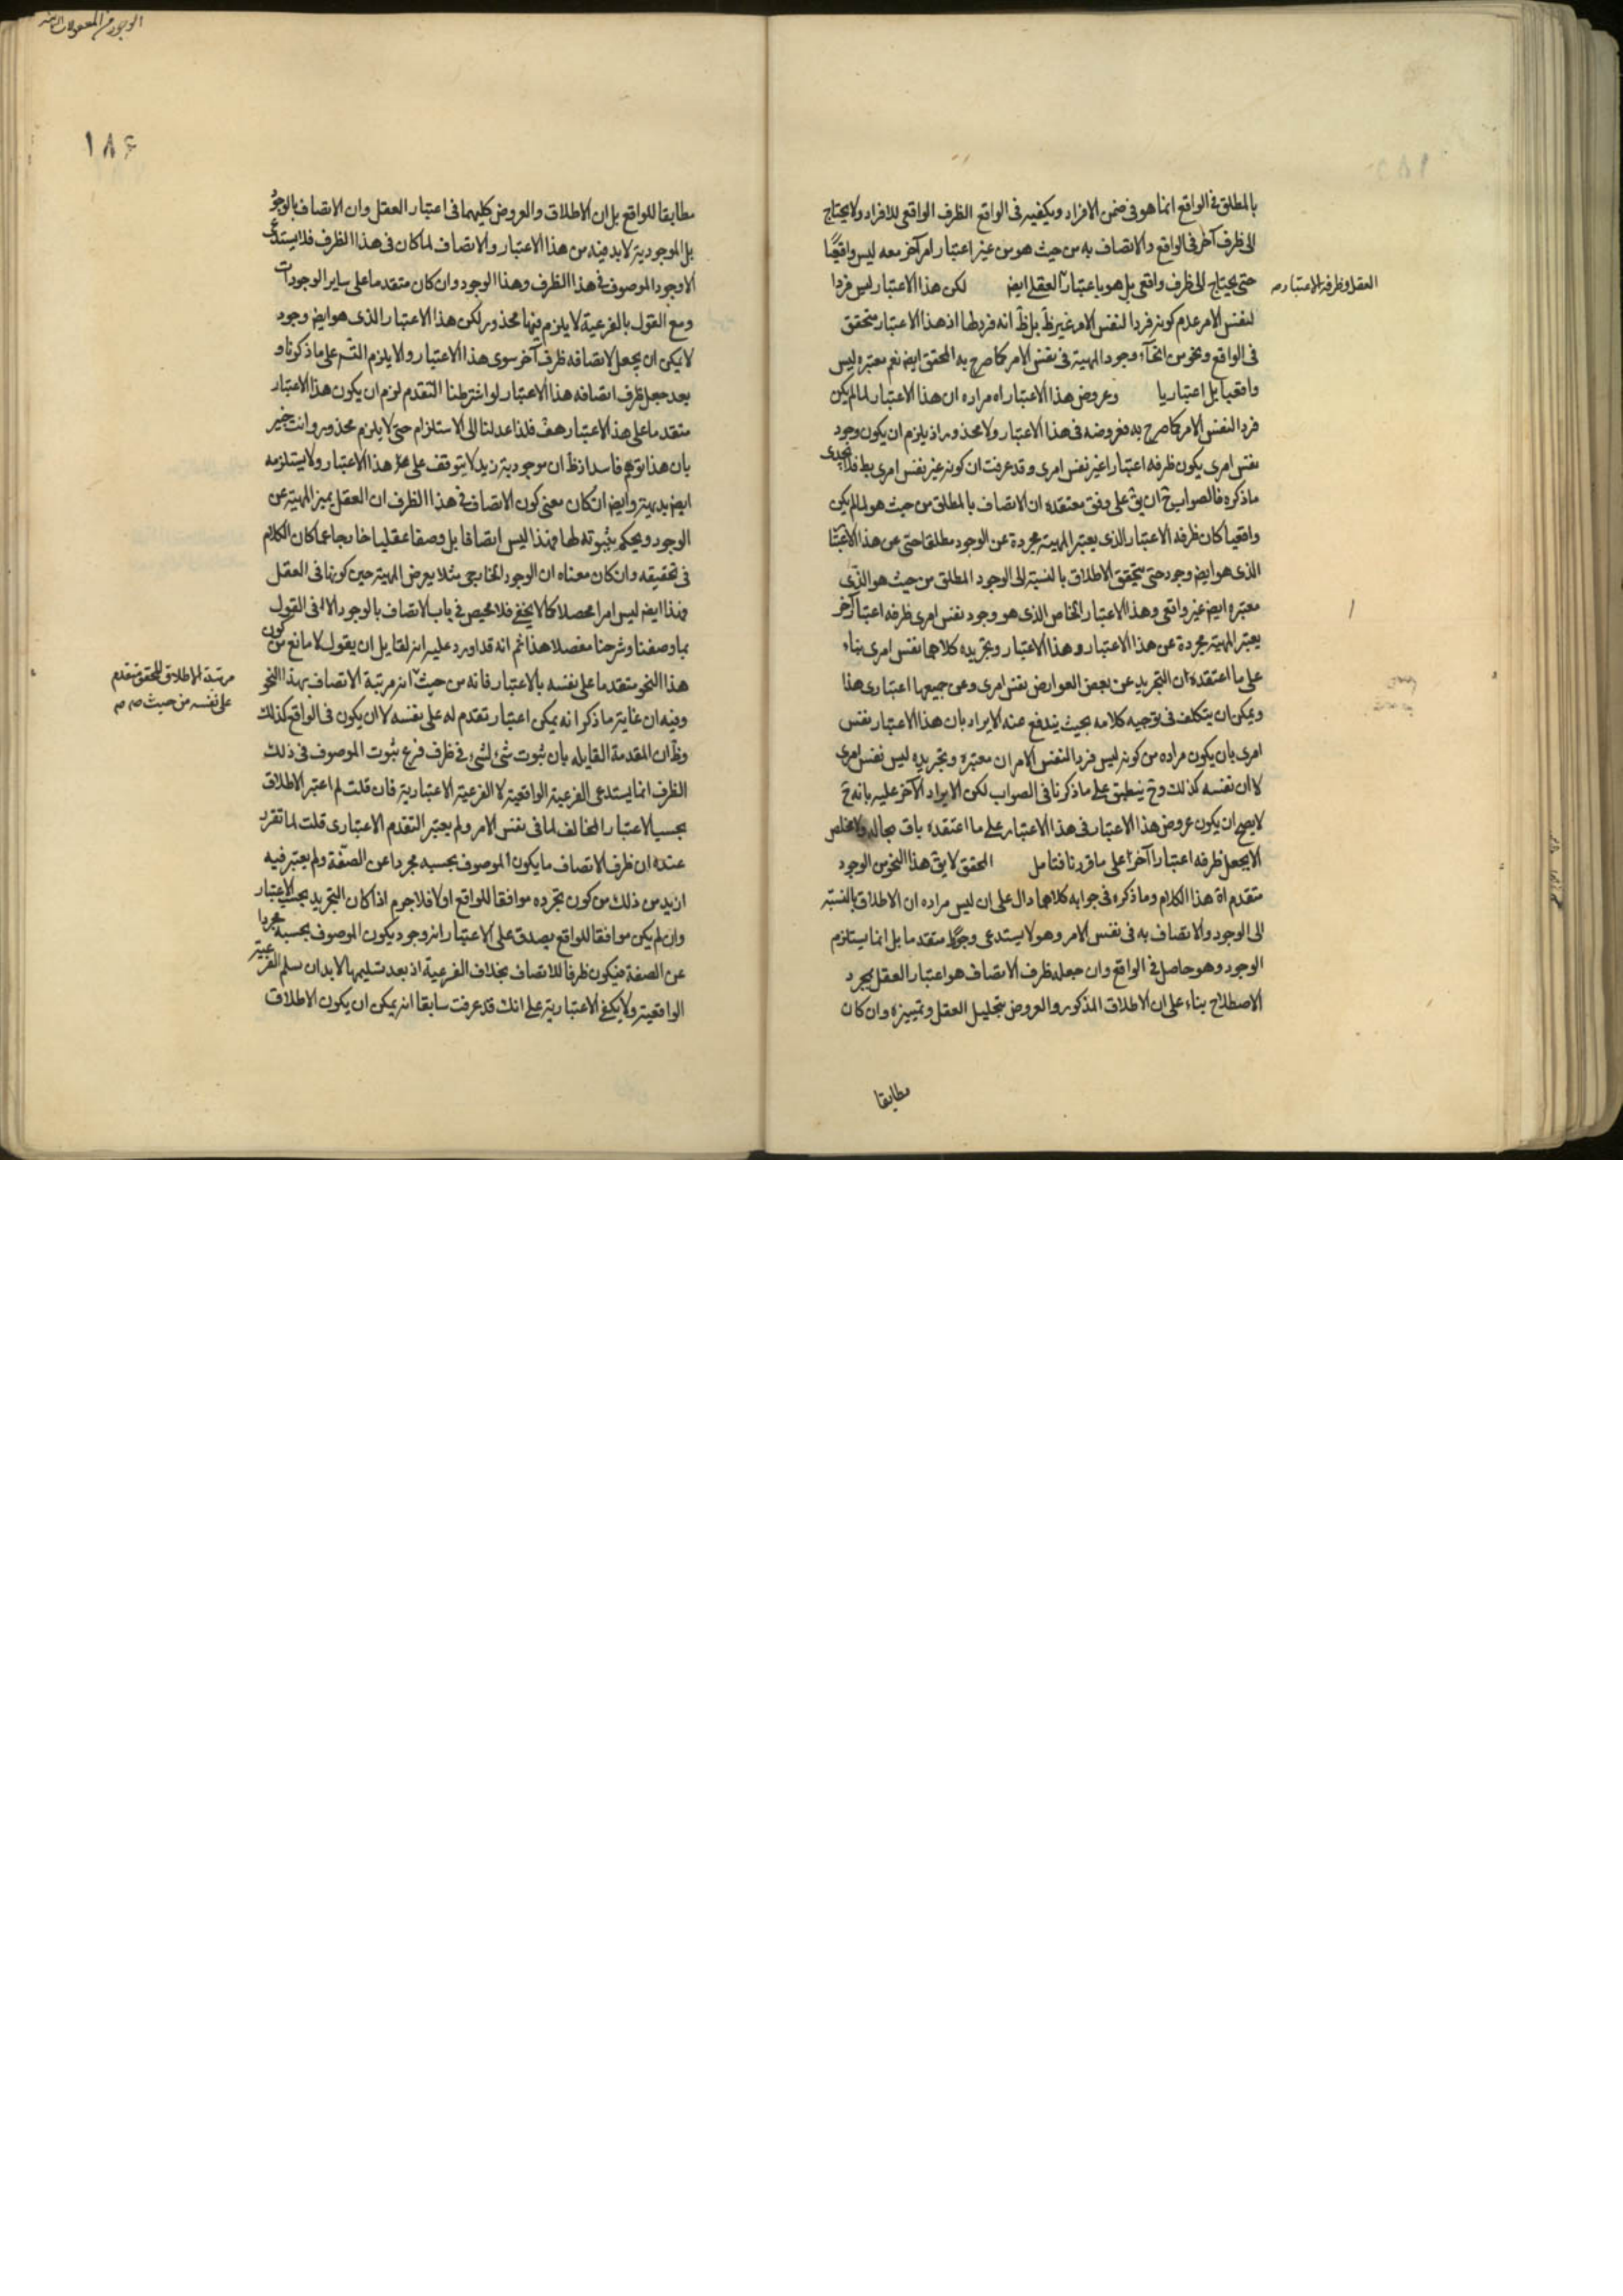 بالمطلق في الواقع انما هو في ضمن الافراد ويكفيه في الواقع الظرف الواقعى للافراد ولا يحتاج
الى ظرف آخر في الواقع والاتصاف به من حيث هو من غير اعتبار امر آخر معه ليس واقعيًا
حتى يحتاج الى ظرف واقعى بل هو باعتبار العقل ايض لكن هذا الاعتبار ليس فردا
العقل وظرفه الاعتبار صه
لنفس الامر عدم كونه فردا لنفس الامر غير ظ بل ظ انه فرد لها اذ هذا الاعتبار متحقق
في الواقع ونحو من انحآء وجود المهية في نفس الامر كما صرح به المحقق ايض نعم معتبره ليس
واقعيا بل اعتباريا وعروض هذا الاعتبار اه مراده ان هذا الاعتبار لما لم يكن
فردا لنفس الامر كما صرح به فعروضه في هذا الاعتبار ولا محذور اذ يلزم ان يكون وجود
نفس امرى يكون ظرفه اعتبارا غير نفس امرى وقد عرفت ان كونه غير نفس امرى بط فلا يجدى
ما ذكره فالصواب ح ان يق على وفق معتقده ان الاتصاف بالمطلق من حيث هو لما لم يكن
واقعيا كان ظرفه الاعتبار الذى يعتبر المهية مجردة عن الوجود مطلقا حتى عن هذا الاعتبا
الذى هو ايض وجود حتى يتحقق الاطلاق بالنسبة الى الوجود المطلق من حيث هو الذى
معتبره ايض غير واقعى وهذا الاعتبار الخاص الذى هو وجود نفس امرى ظرفه اعتبا آخر
يعتبر المهية مجردة عن هذا الاعتبار وهذا الاعتبار وتجريده كلاهما نفس امرى بناء
على ما اعتقده ان التجريد عن بعض العوارض نفس امرى وعن جميعها اعتبارى هذا
ويمكن ان يتكلف في توجيه كلامه بحيث يندفع عنه الايراد بان هذا الاعتبار نفس
امرى بان يكون مراده من كونه ليس فردا لنفس الامر ان معتبره وتجريده ليس نفس امرى
لا ان نفسه كذلك وح ينطبق على ما ذكرنا في الصواب لكن الايراد الآخر عليه بانه ح
لا يصح ان يكون عروض هذا الاعتبار في هذا الاعتبار على ما اعتقده باق بحاله ولا مخلص
الا بجعل ظرفه اعتبارا آخر على ما قررنا فتامل المحقق لا يق هذا النحو من الوجود
متقدم اه هذا الكلام وما ذكره في جوابه كلاهما دال على ان ليس مراده ان الاطلاق بالنسبة
الى الوجود والاتصاف به في نفس الامر وهو لا يستدعى وجودا متقدما بل انما يستلزم
الوجود وهو حاصل في الواقع وان جعله ظرف الاتصاف هو اعتبار العقل بمجرد
الاصطلاح بناء على ان الاطلاق المذكور والعروض بتحليل العقل وتمييزه وان كان
مطابقا
١٨٤
مطابقا للواقع بل ان الاطلاق والعروض كليهما في اعتبار العقل وان الاتصاف بالوجود
بل الموجودية لا بد فيه من هذا الاعتبار والاتصاف لما كان في هذا الظرف فلا يستدعى
الا وجود الموصوف في هذا الظرف وهذا الوجود وان كان متقدما على ساير الوجودات
ومع القول بالفرعية لا يلزم فيها محذور لكن هذا الاعتبار الذى هو ايض وجود
لا يمكن ان يجعل لاتصافه ظرف آخر سوى هذا الاعتبار والا يلزم التسـ على ما ذكرنا و
بعد جعل ظرف اتصافه هذا الاعتبار لو اشترطنا التقدم لزم ان يكون هذا الاعتبار
متقدما على هذا الاعتبار هف فلذا عدلنا الى الاستلزام حتى لا يلزم محذور وانت خبير
بان هذا توهم فاسد اذ ظ ان موجودية زيد لا يتوقف على هذا الاعتبار ولا يستلزمه
ايض بديهية وايض ان كان معنى كون الاتصاف في هذا الظرف ان العقل يميز المهية عن
الوجود ويحكم بثبوته لها فهذا ليس اتصافا بل وصفا عقليا خارجا عما كان الكلام
في تحقيقه وان كان معناه ان الوجود الخارجى مثلا يعرض المهية حين كونها في العقل
فهذا ايض ليس امرا محصلا كما لا يخفى فلا محيص في باب الاتصاف بالوجود الا في القول
بما وصفنا وشرحنا مفصلا هذا ثم انه قد اورد عليه انه لقايل ان يقول لا مانع من كون
هذا النحو متقدما على نفسه بالاعتبار فانه من حيث انه مرتبة الاتصاف بهذا النحو
مرتبة الاطلاق للتحقق متقدم
على نفسه من حيث صه صه
وفيه ان غاية ما ذكر انه يمكن اعتبار تقدم له على نفسه لا ان يكون في الواقع كذلك
وظ ان المقدمة القايله بان ثبوت شئ لشئ في ظرف فرع ثبوت الموصوف في ذلك
الظرف انما يستدعى الفرعية الواقعية لا الفرعية الاعتبارية فان قلت لم اعتبر الاطلاق
بحسب الاعتبار المخالف لما في نفس الامر ولم يعتبر التقدم الاعتبارى قلت لما تقرر
عنده ان ظرف الاتصاف ما يكون الموصوف بحسبه مجردا عن الصفة ولم يعتبر فيه
ازيد من ذلك من كون تجرده موافقا للواقع او لا فلا جرم اذا كان التجريد بحسب الاعتبار
وان لم يكن موافقا للواقع يصدق على الاعتبار انه وجود يكون الموصوف بحسبه مجردا
عن الصفة فيكون ظرفا للاتصاف بخلاف الفرعية اذ بعد تسليمها لا بد ان يسلم الفرعية
الواقعية ولا يكفى الاعتبارية على انك قد عرفت سابقا انه يمكن ان يكون الاطلاق